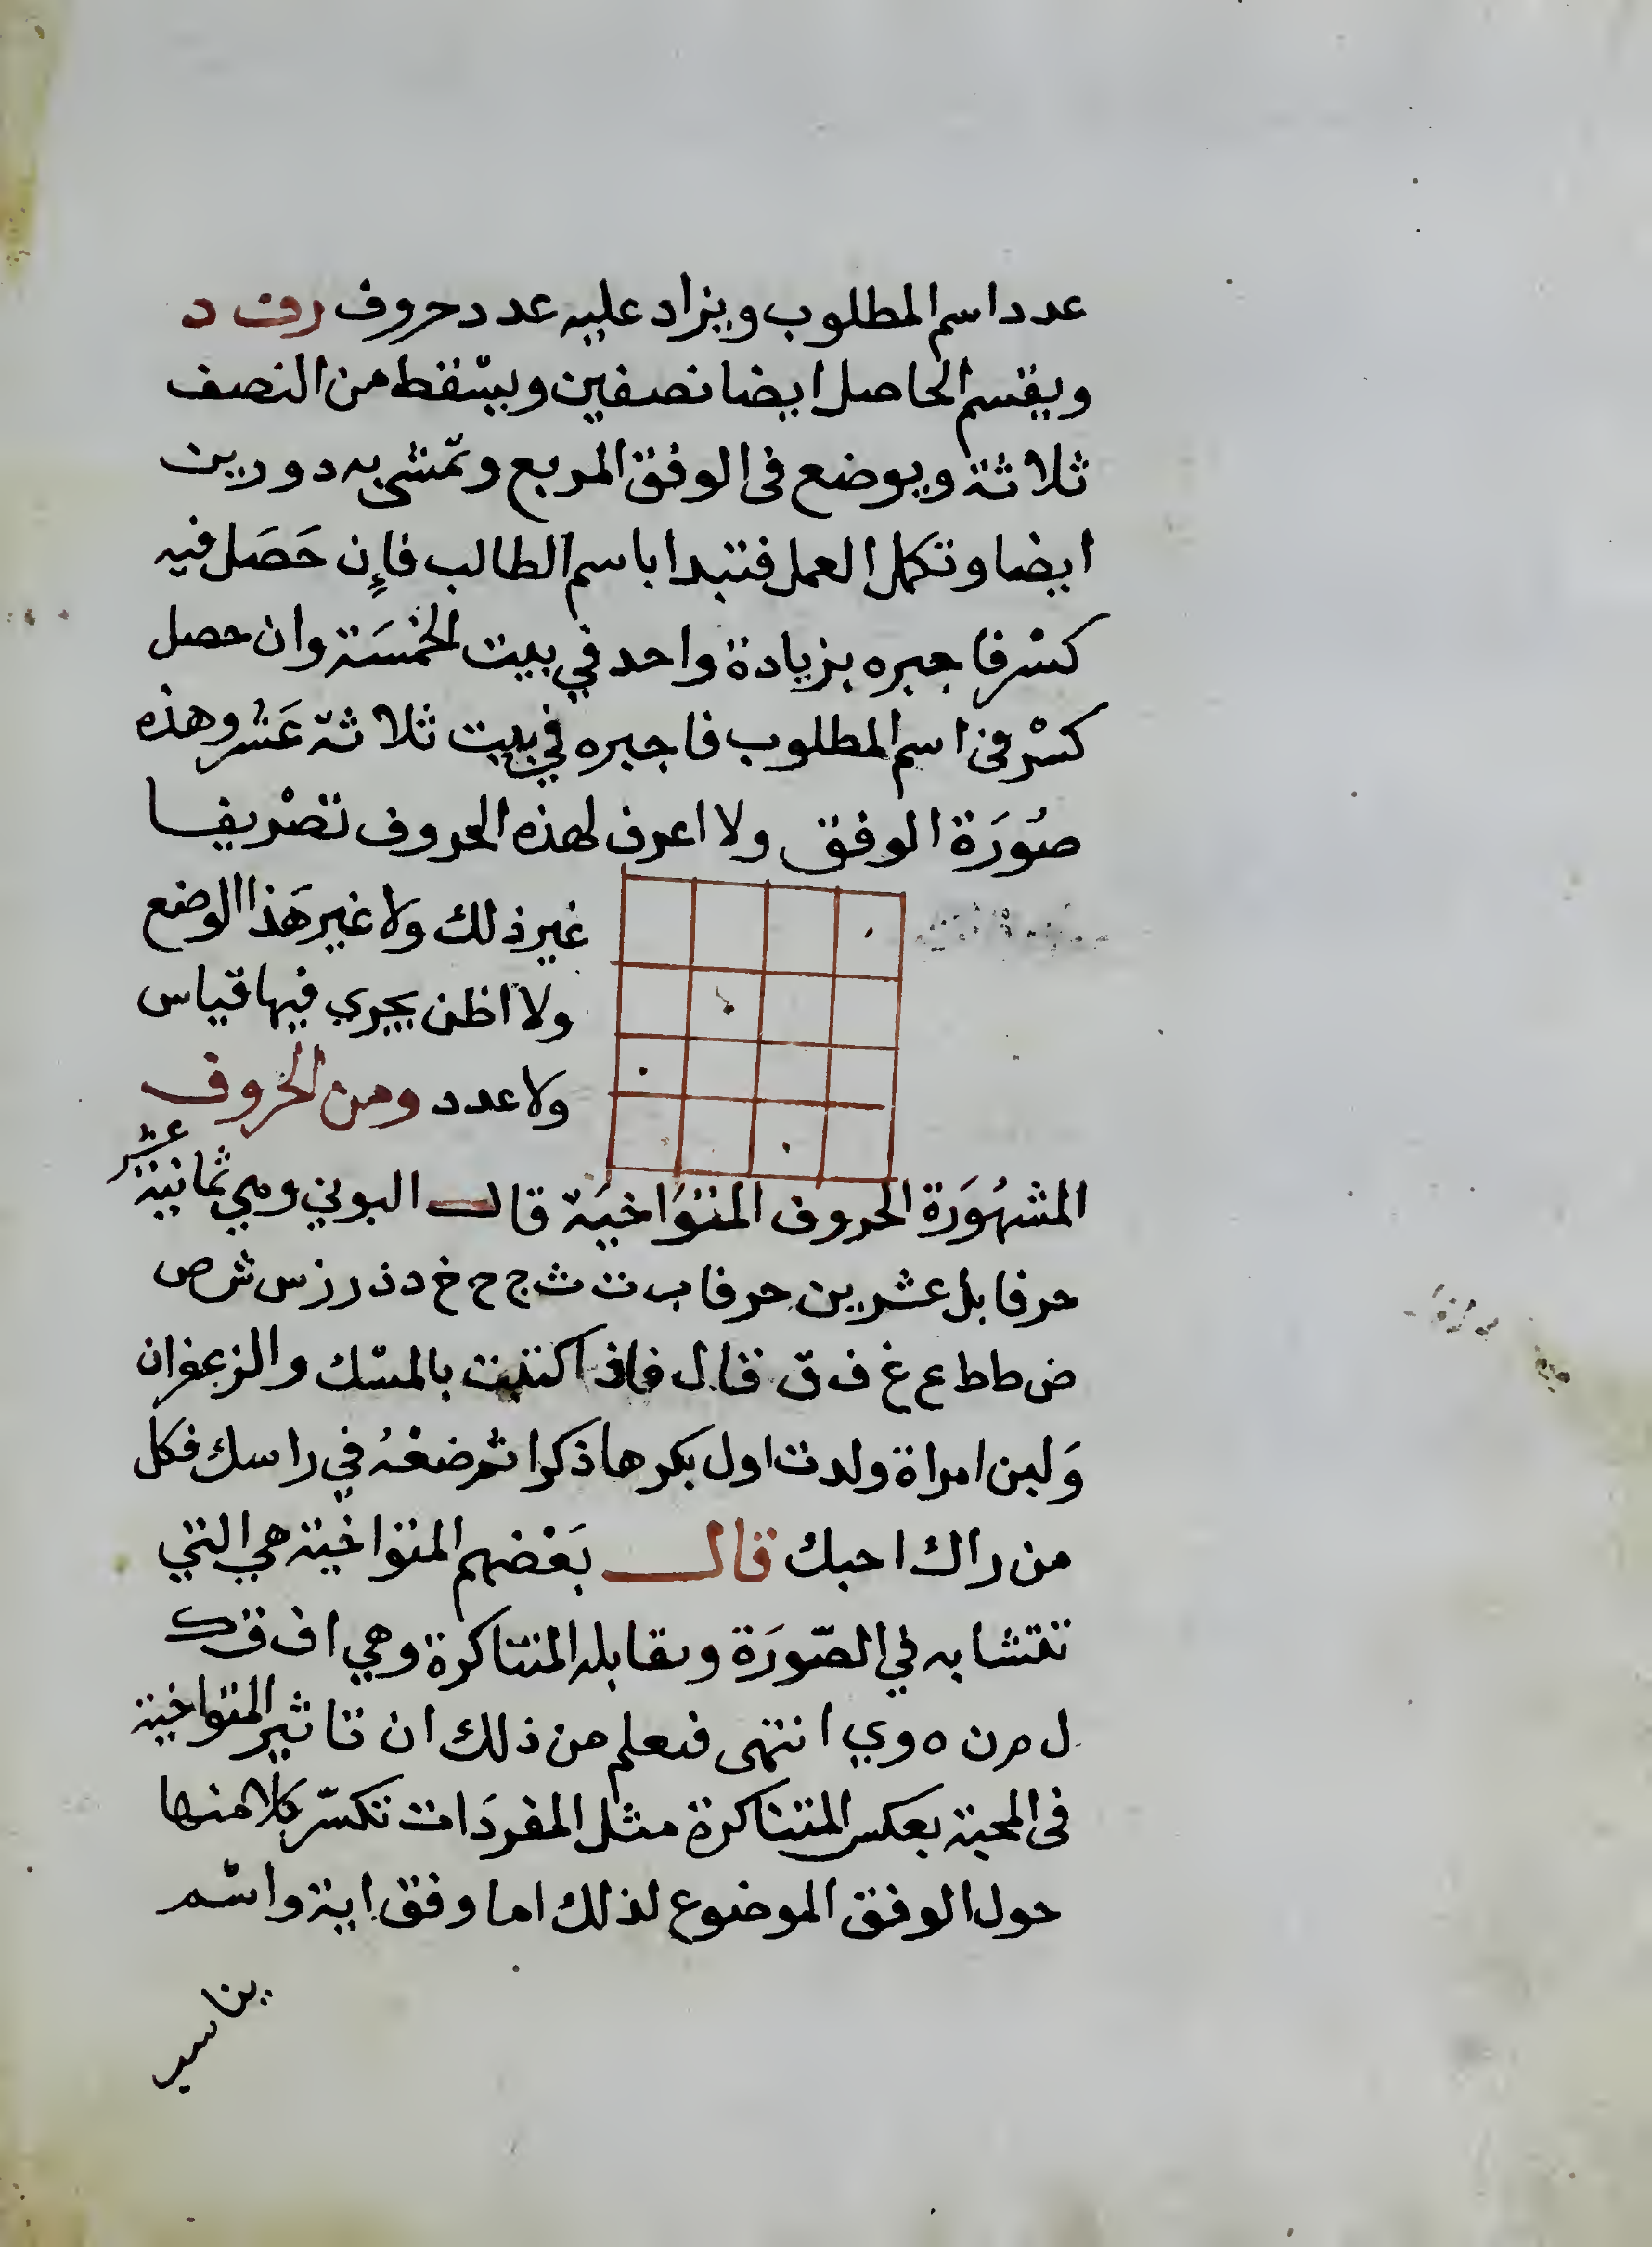 عدد اسم المطلوب ويزاد عليه عدد حروف رف د
ويقسم الحاصل ايضا نصفين ويسقط من النصف
ثلاثة ويوضع فى الوفق المربع وتمشى به دورين
ايضا وتكمل العمل فتبدا باسم الطالب فإن حَصَل فيه
كسْر فاجبره بزيادة واحد في بيت الخمسَة وان حصل
كسْر فى اسم المطلوب فاجبره في بيت ثلاثة عَشر وهذه
صُورَة الوفق ولا اعرف لهذه الحروف تصْريفا
غير ذلك ولا غير هَذا الوضع
ولا اظن يجري فيها قياس
ولا عدد ومن الحروف
المشهُورَة الحروف المتوَاخيَة قال البوني وهي ثمانية عشر
حرفا بل عشرين حرفا ب ت ث ج ح خ د ذ ر ز س ش ص
ض ط ظ ع غ ف ق قال فاذا كتبت بالمسْك والزعفران
وَلبن امراة ولدت اول بكرها ذكرا ثم ضعْهُ في راسك فكل
من راك احبك قال بَعْضهم المتواخية هي التي
تتشابه في الصّورَة ويقابله المتناكرة وهي ا ف ق ك
ل م ن ه و ي انتهى فيعلم من ذلك ان تاثير المتواخية
فى المحبة بعكس المتناكرة مثل المفردَات تكسّر كلا منها
حول الوفق الموضوع لذلك اما وفق اية واسْم